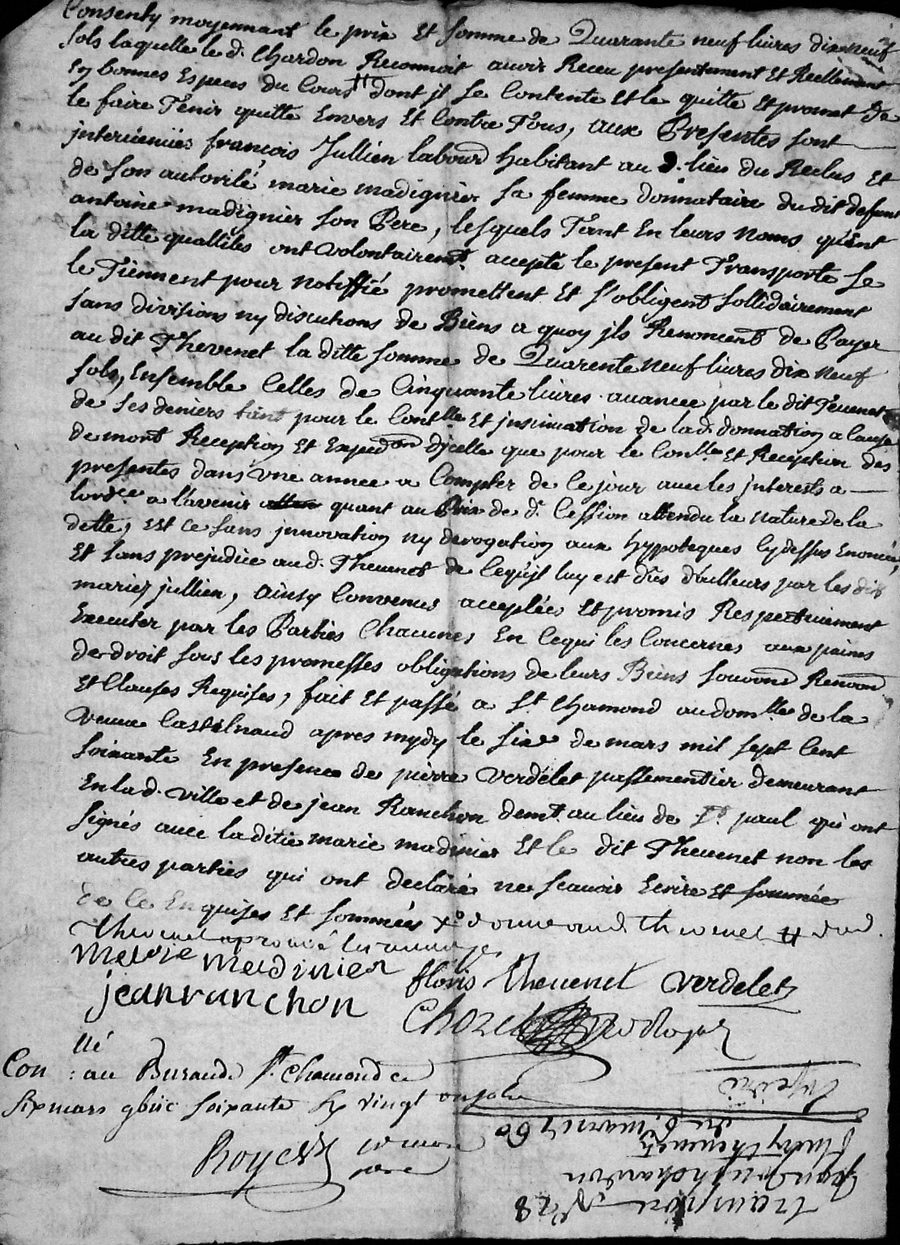 Consenty moyennant le prix et somme de Quarante neuf livres dix neuf
sols laquelle le d. Chardon Reconnoit avoir Receu presentement et Reellement
En bonnes Especes du Cours # dont jl se Contente et le quitte et promet de
le faire Tenir quitte Envers et Contre Tous, aux Presentes sont
intervenües françois Jullien labourd habitant au d. lieu du Reclus et
de son autorité marie madignier sa femme donnataire du dit defunt
antoine madignier son Pere, lesquels Tant En leurs noms qu'ent
la ditte quallites ont volontairemt accepté le present Transporte se
le Tiennent pour notiffié promettent et s'obligent sollidairement
sans divisions ny discutions de Biens a quoy jls Renoncent de Payer
au dit Thevenet la ditte somme de Quarente neuf livres dix neuf
sols, Ensemble Celles de Cinquante livres avancee par le dit Tevenet
de ses deniers tant pour le Conlle et jnsinuation de lad. donnation a Cause
de mort Reception et Expedon d'jcelle que pour le Conlle et Reception des
presentes dans vne annee a Compter de Ce jour avec les jnterests a
lordce a l'avenir quant au Prix de d. Cession attendu la nature de la
dette, est Ce sans jnnovation ny derogation aux hypoteques Cy dessus Enoncée,
Et sans prejudice aud. Thevenet de Cequ'jl luy est düs d'ailleurs par les dits
mariez jullien, ainsy Convenus acceptée et promis Respectivement
Executer par les Parties Chacunes En Cequi les Concernes aux paines
de droit sous les promesses obligations de leurs Biens souvond Renond
et Clauses Requises, fait et passé a St Chamond au domlle de la
veuve Castelnaud apres mydy le six de mars mil sept Cent
soixante En presence de pierre Verdelet passementier demeurant
En la d. ville et de jean Ranchon demt au lieu de St paul qui ont
signés avec la ditte marie madinier et le dit Thevenet non les
autres parties qui ont declaré ne scavoir Ecrire et
de Ce Enquises et sommées
marie madinier
floris Thevenet Verdelet
jean ranchon
Chozet
Con llé au Bureau de St Chamond Ce
six mars gbiic soixante vingt
Royer
du 6 mars 1760
N° 28